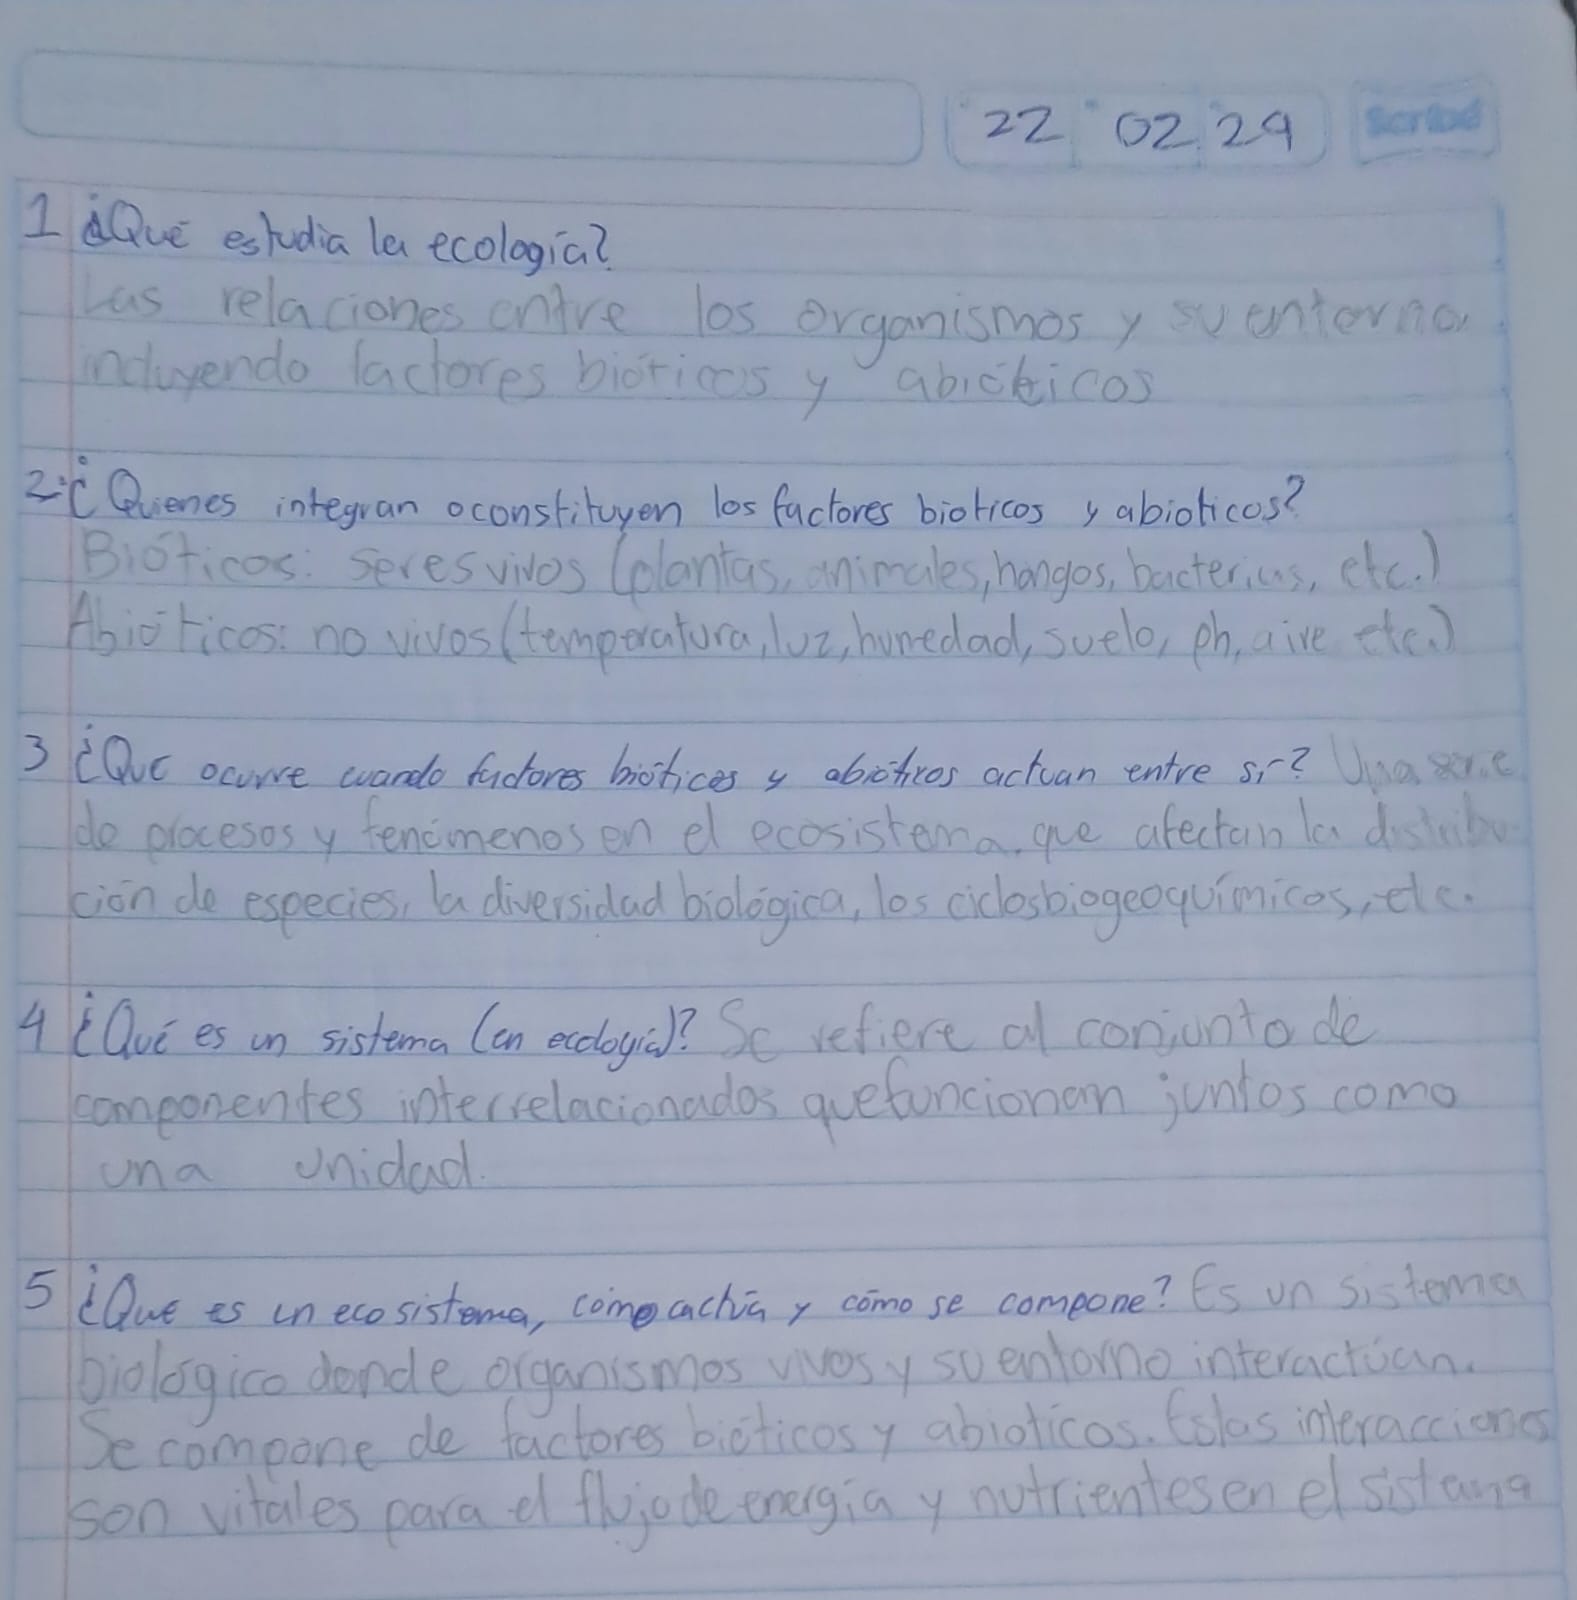 22 02 24
Scribe
1 ¿Qué estudia la ecología?
Las relaciones entre los organismos y su entorno,
incluyendo factores bióticos y abióticos
2. ¿Quienes integran o constituyen los factores bioticos y abioticos?
Bióticos: seres vivos (plantas, animales, hongos, bacterias, etc.)
Abióticos: no vivos (temperatura, luz, humedad, suelo, ph, aire etc.)
3 ¿Que ocurre cuando factores bióticos y abióticos actúan entre sí? Una serie
de procesos y fenómenos en el ecosistema, que afectan la distribu-
ción de especies, la diversidad biológica, los ciclos biogeoquímicos, etc.
4 ¿Qué es un sistema (en ecología)? Se refiere al conjunto de
componentes interrelacionados que funcionan juntos como
una unidad.
5 ¿Que es un ecosistema, como actúa y cómo se compone? Es un sistema
biológico donde organismos vivos y su entorno interactúan.
Se compone de factores bióticos y abioticos. Estas interacciones
son vitales para el flujo de energía y nutrientes en el sistema